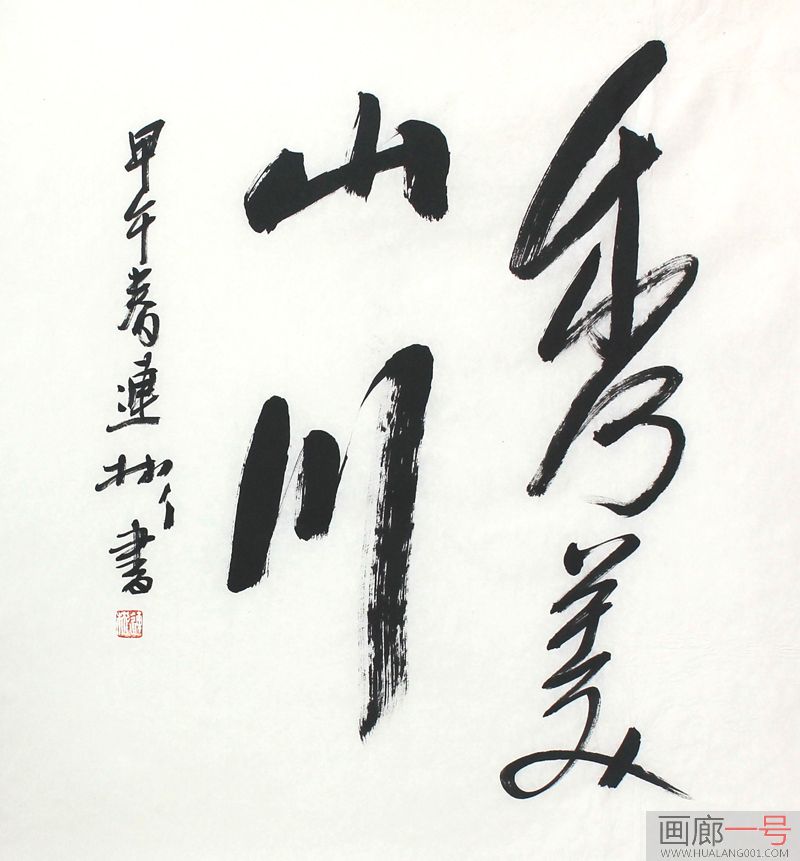 秀美
山川
甲午春連彬書
画廊一号
WWW.HUALANG001.COM